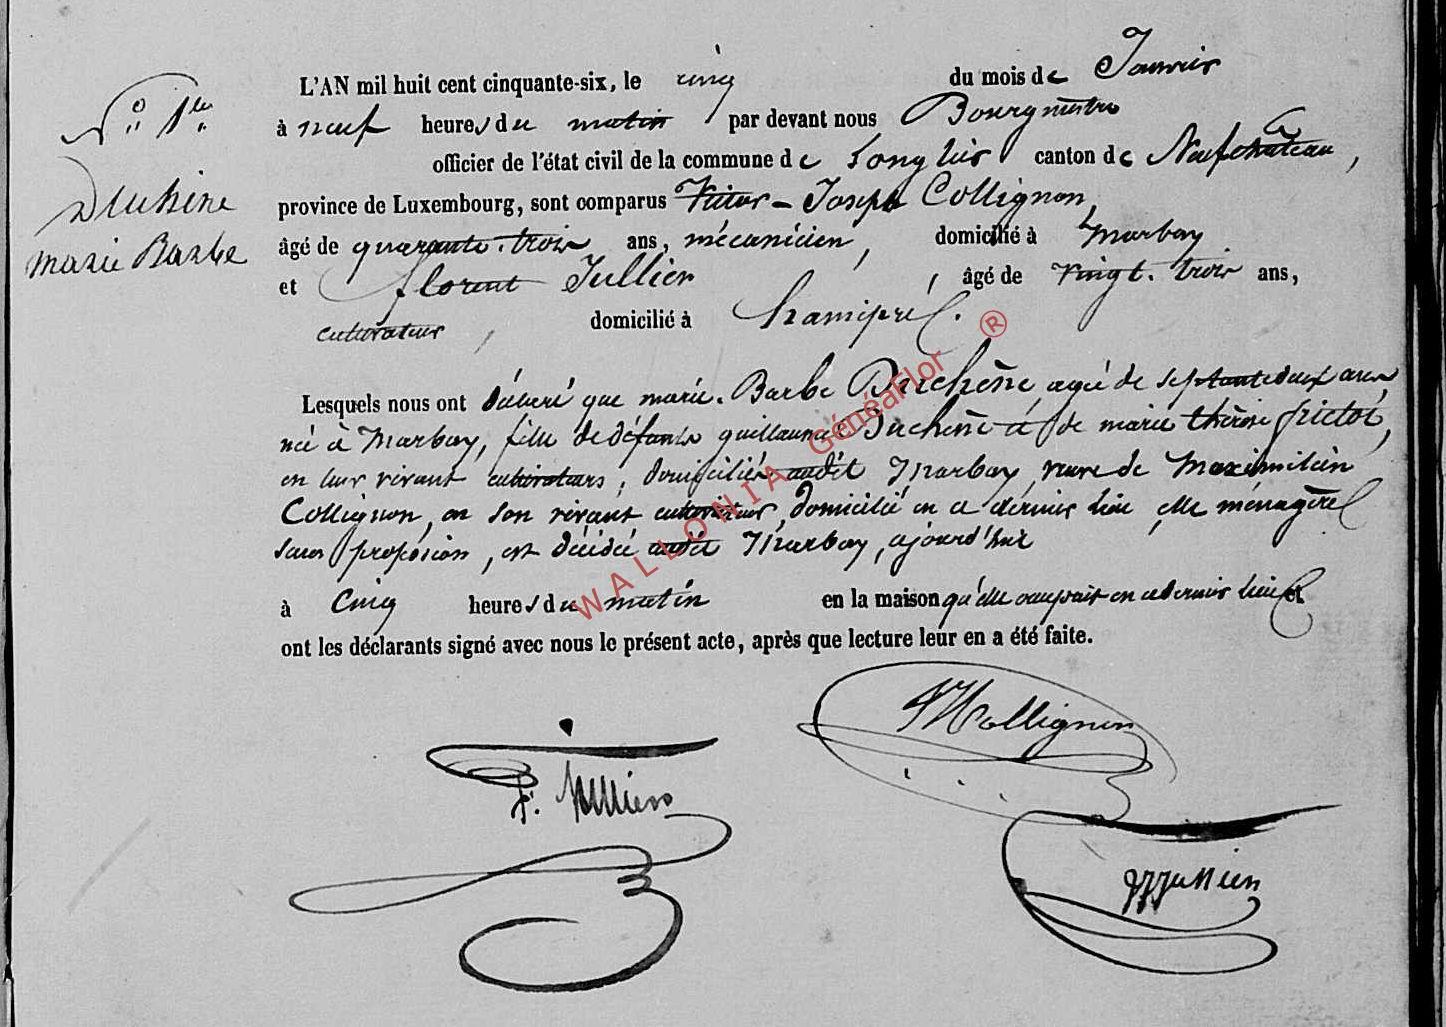 N° 1er
Duchêne
Marie Barbe
L'AN mil huit cent cinquante-six, le cinq du mois de Janvier
à neuf heures du matin par devant nous Bourgmestre
officier de l'état civil de la commune de Longlier canton de Neufchâteau,
province de Luxembourg, sont comparus Victor-Joseph Collignon
âgé de quarante-trois ans, mécanicien, domicilié à Marbay
et florent Jullien, âgé de vingt-trois ans,
cultivateur, domicilié à hamipré.
Lesquels nous ont déclaré que marie-Barbe Duchêne, agée de septante deux ans
né à Marbay, fille de défunts guillaume Duchêne et de marie thérèse
en leur vivant cultivateurs, domiciliés audit Marbay, veuve de Maximilien
Collignon, en son vivant cultivateur, domicilié en ce dernier lieu, elle ménagère
sans profession, est décédée audit Marbay, ajourd'hui
à cinq heures du matin en la maison qu'elle occupait en ce dernier lieu et
ont les déclarants signé avec nous le présent acte, après que lecture leur en a été faite.
Collignon
F. Jullien
Jullien
WALLONIA GénéaFlor ®